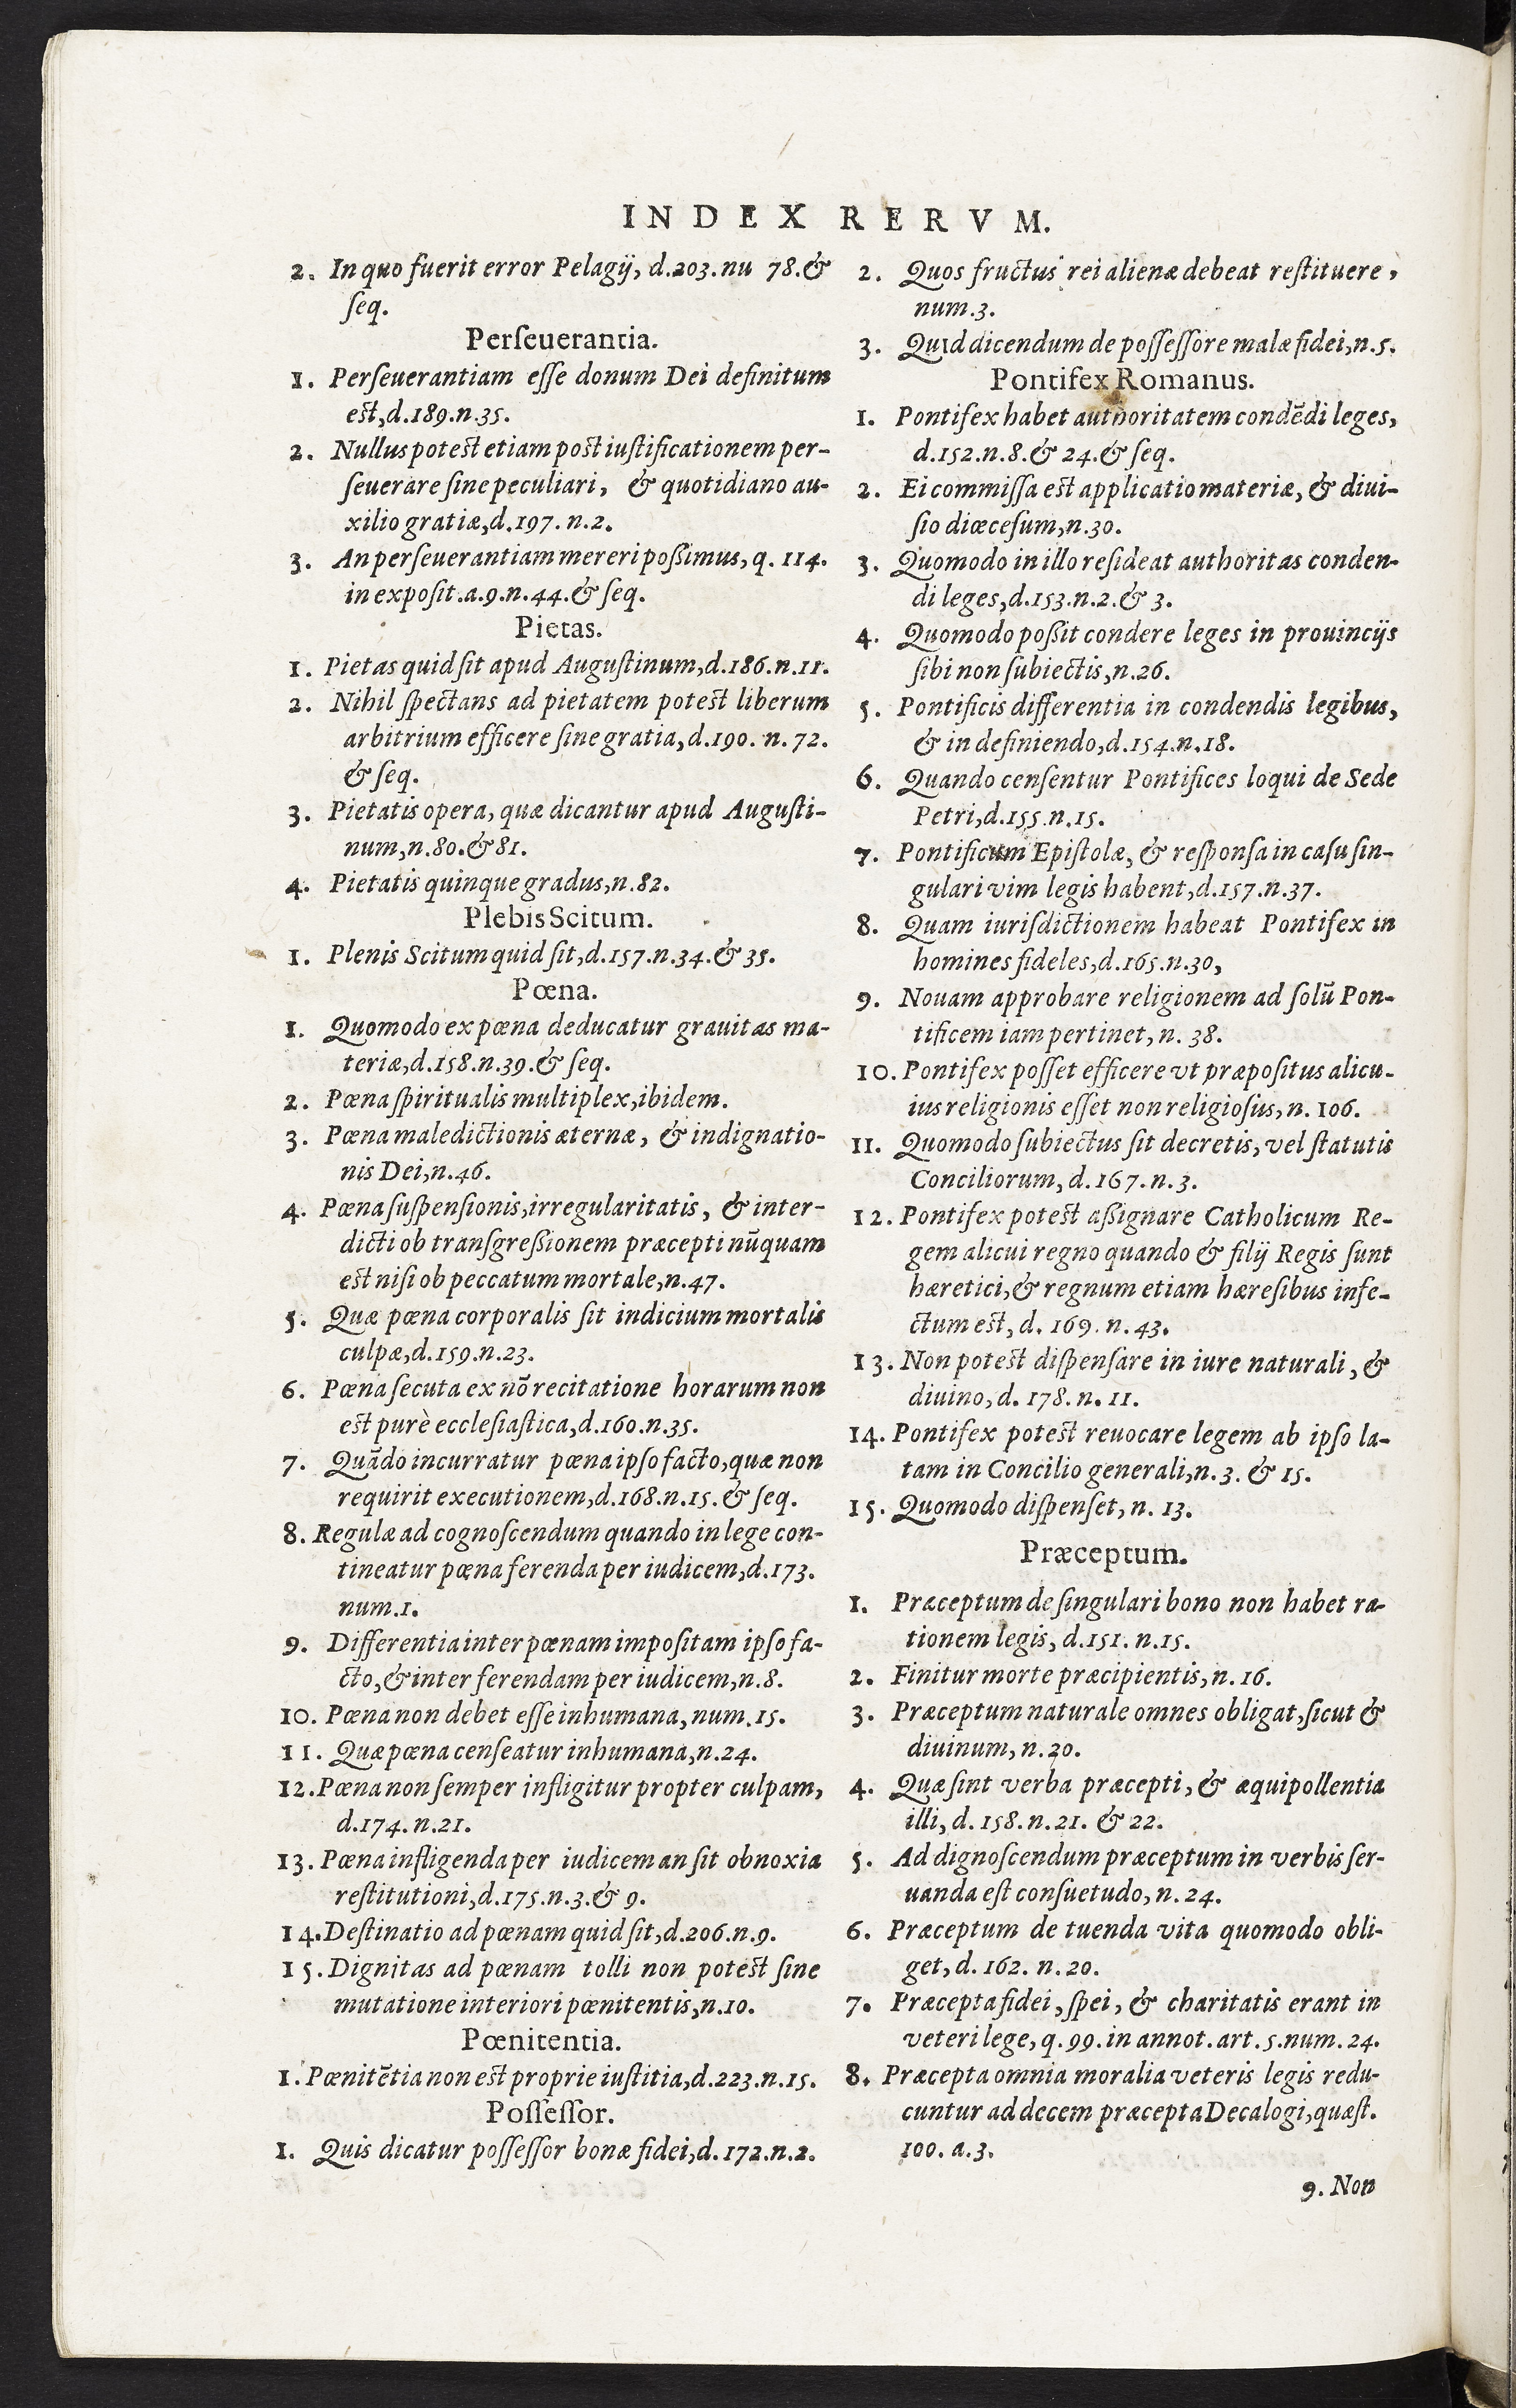 INDEX RERVM.
2. In quo fuerit error Pelagij, d.203. nu 78. &
ſeq.
Perſeuerantia.
1. Perſeuerantiam eſſe donum Dei definitum
eſt, d.189.n.35.
2. Nullus poteſt etiam poſt iuſtificationem per-
ſeuerare ſine peculiari, & quotidiano au-
xilio gratiæ, d.197. n.2.
3. An perſeuerantiam mereri poßimus, q. 114.
in expoſit.a.9.n.44.& ſeq.
Pietas.
1. Pietas quid ſit apud Auguſtinum, d.186.n.11.
2. Nihil ſpectans ad pietatem poteſt liberum
arbitrium efficere ſine gratia, d.190. n. 72.
& ſeq.
3. Pietatis opera, quæ dicantur apud Auguſti-
num, n.80.& 81.
4. Pietatis quinque gradus, n.82.
Plebis Scitum.
1. Plenis Scitum quid ſit, d.157.n.34.& 35.
Pœna.
1. Quomodo ex pœna deducatur grauitas ma-
teriæ, d.158.n.39.& ſeq.
2. Pœna ſpiritualis multiplex, ibidem.
3. Pœna maledictionis æternæ, & indignatio-
nis Dei, n.46.
4. Pœna ſuſpenſionis, irregularitatis, & inter-
dicti ob tranſgreßionem præcepti nũquam
eſt niſi ob peccatum mortale, n.47.
5. Quæ pœna corporalis ſit indicium mortalis
culpæ, d.159.n.23.
6. Pœna ſecuta ex nõ recitatione horarum non
eſt purè eccleſiaſtica, d.160.n.35.
7. Quãdo incurratur pœna ipſo facto, quæ non
requirit executionem, d.168.n.15. & ſeq.
8. Regulæ ad cognoſcendum quando in lege con-
tineatur pœna ferenda per iudicem, d.173.
num.1.
9. Differentia inter pœnam impoſitam ipſo fa-
cto, & inter ferendam per iudicem, n.8.
10. Pœna non debet eſſe inhumana, num.15.
11. Quæ pœna cenſeatur inhumana, n.24.
12. Pœna non ſemper infligitur propter culpam,
d.174. n.21.
13. Pœna infligenda per iudicem an ſit obnoxia
reſtitutioni, d.175.n.3.& 9.
14. Deſtinatio ad pœnam quid ſit, d.206.n.9.
15. Dignitas ad pœnam tolli non poteſt ſine
mutatione interiori pœnitentis, n.10.
Pœnitentia.
1. Pœnitẽtia non eſt proprie iuſtitia, d.223.n.15.
Poſſeſſor.
1. Quis dicatur poſſeſſor bonæ fidei, d.172.n.2.
2. Quos fructus rei alienæ debeat reſtituere,
num.3.
3. Quid dicendum de poſſeſſore malæ fidei, n.5.
Pontifex Romanus.
1. Pontifex habet authoritatem condẽdi leges,
d.152.n.8.& 24.& ſeq.
2. Ei commiſſa eſt applicatio materiæ, & diui-
ſio diœceſum, n.30.
3. Quomodo in illo reſideat authoritas conden-
di leges, d.153.n.2.& 3.
4. Quomodo poßit condere leges in prouincijs
ſibi non ſubiectis, n.26.
5. Pontificis differentia in condendis legibus,
& in definiendo, d.154.n.18.
6. Quando cenſentur Pontifices loqui de Sede
Petri, d.155.n.15.
7. Pontificum Epiſtolæ, & reſponſa in caſu ſin-
gulari vim legis habent, d.157.n.37.
8. Quam iuriſdictionem habeat Pontifex in
homines fideles, d.165.n.30,
9. Nouam approbare religionem ad ſolũ Pon-
tificem iam pertinet, n. 38.
10. Pontifex poſſet efficere vt præpoſitus alicu-
ius religionis eſſet non religioſus, n. 106.
11. Quomodo ſubiectus ſit decretis, vel ſtatutis
Conciliorum, d.167.n.3.
12. Pontifex poteſt aßignare Catholicum Re-
gem alicui regno quando & filij Regis ſunt
hæretici, & regnum etiam hæreſibus infe-
ctum eſt, d. 169. n. 43.
13. Non poteſt diſpenſare in iure naturali, &
diuino, d. 178. n. 11.
14. Pontifex poteſt reuocare legem ab ipſo la-
tam in Concilio generali, n.3. & 15.
15. Quomodo diſpenſet, n. 13.
Præceptum.
1. Præceptum de ſingulari bono non habet ra-
tionem legis, d.151. n.15.
2. Finitur morte præcipientis, n. 16.
3. Præceptum naturale omnes obligat, ſicut &
diuinum, n. 20.
4. Quæ ſint verba præcepti, & æquipollentia
illi, d. 158. n. 21. & 22.
5. Ad dignoſcendum præceptum in verbis ſer-
uanda eſt conſuetudo, n. 24.
6. Præceptum de tuenda vita quomodo obli-
get, d. 162. n. 20.
7. Præcepta fidei, ſpei, & charitatis erant in
veteri lege, q. 99. in annot. art. 5. num. 24.
8. Præcepta omnia moralia veteris legis redu-
cuntur ad decem præcepta Decalogi, quæſt.
100. a.3.
9. Non